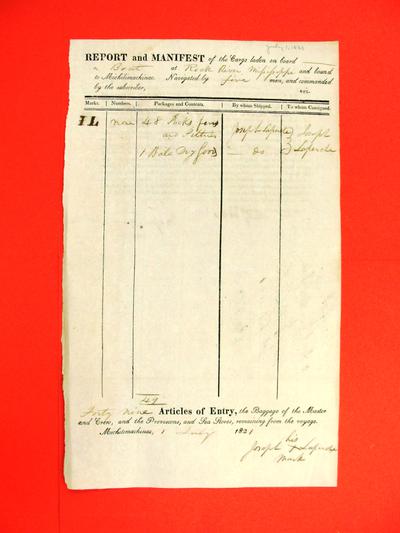 July 1, 1821
REPORT and MANIFEST of the Cargo taken on board
a Boat at Rock River Missisippi and bound
to Michilimackinac. Navigated by five men, and commanded
by the subscriber,
Marks. Numbers. Packages and Contents. By whom Shipped. To whom Consigned.
IL none 48 Packs furs Joseph Laperche Joseph
and Peltries Laperche
1 Bale Dry Goods do
49
Forty nine Articles of Entry, the Baggage of the Master
and Crew, and the Provisions, and Sea Stores, remaining from the voyage.
Michilimackinac, 1 July 1821
his
Joseph X Laperche
Mark